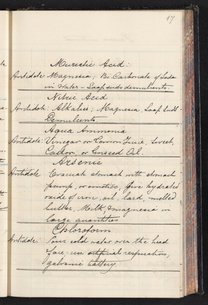 17
Muriatic Acid.
Antidote Magnesia, Bi Carbonate of Soda
in Water - Soap suds demulcents.
Nitric Acid
Antidote. Alkalies, Magnesia, Soap suds
Demulcents
Aqua Ammonia
Antidote Vinegar or Lemon Juice, Sweet,
Castor, or Linseed Oil.
Arsenic
Antidote Evacuate stomach with stomach
pump, or emetics, give hydrated
oxide of iron, oil, lard, melted
butter, Milk & magnesia in
large quantities
Chloroform
Antidote. Pour cold water over the head
face, use artificial respiration,
galvanic battery.